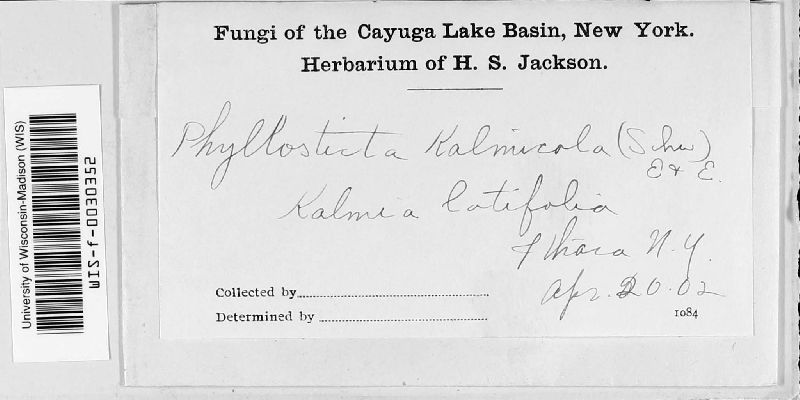 Fungi of the Cayuga Lake Basin, New York.
Herbarium of H. S. Jackson.
Phyllosticta Kalmicola (Schw)
E & E.
Kalmia latifolia
Ithaca N.Y.
Apr. 20. 02
Collected by
Determined by
1084
University of Wisconsin-Madison (WIS)
WIS-f-0030352